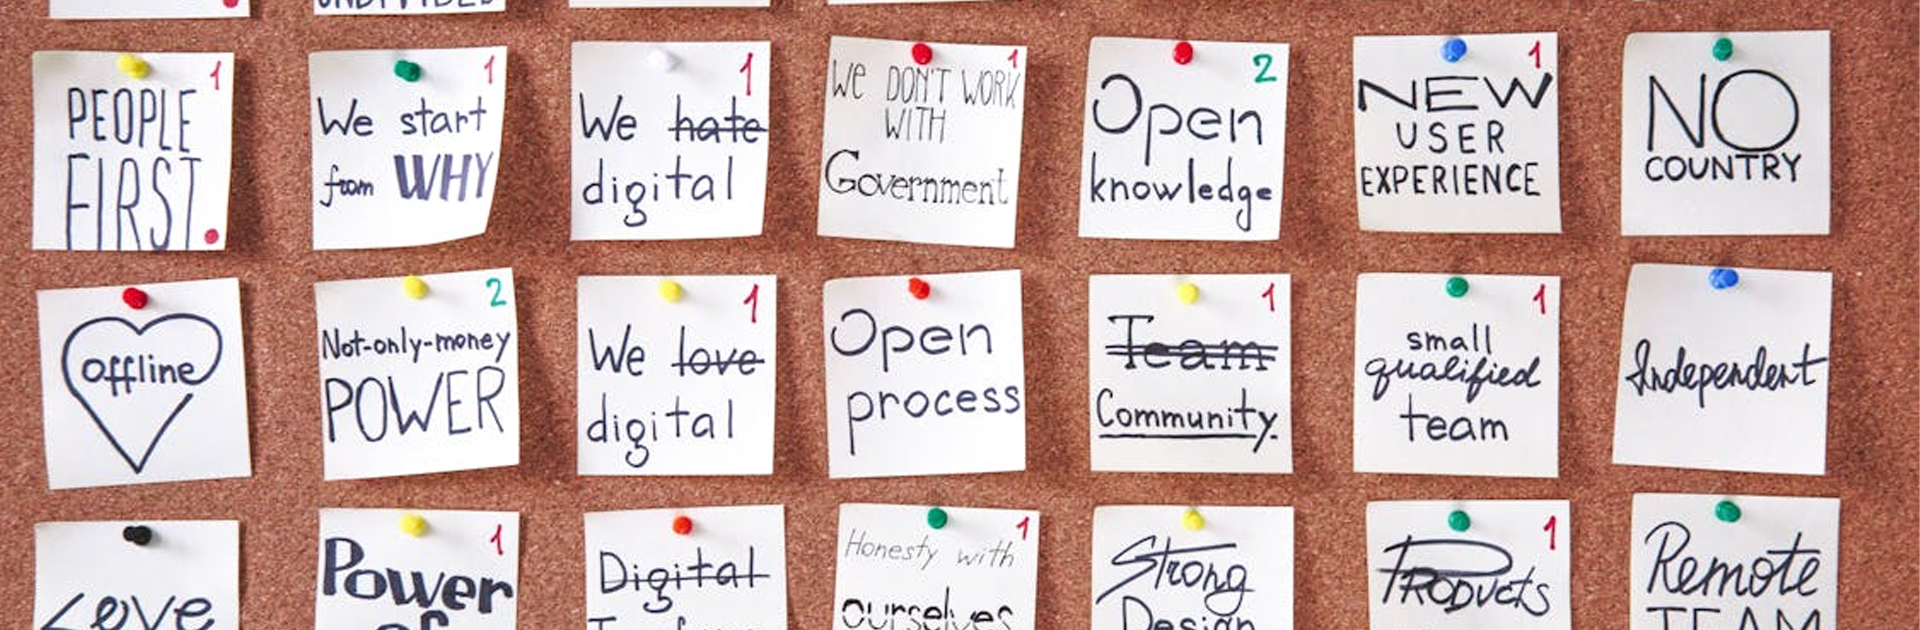 PEOPLE
FIRST.
1
We start
from WHY
1
We hate
digital
1
We DON'T WORK
WITH
Government
1
Open
knowledge
2
NEW
USER
EXPERIENCE
1
NO
COUNTRY
offline
Not-only-money
POWER
2
We love
digital
1
Open
process
Team
Community.
1
small
qualified
team
1
Independent
Love
Power
of
1
Digital
Honesty with
ourselves
1
Strong
Design
PRODUCTS
1
Remote
TEAM